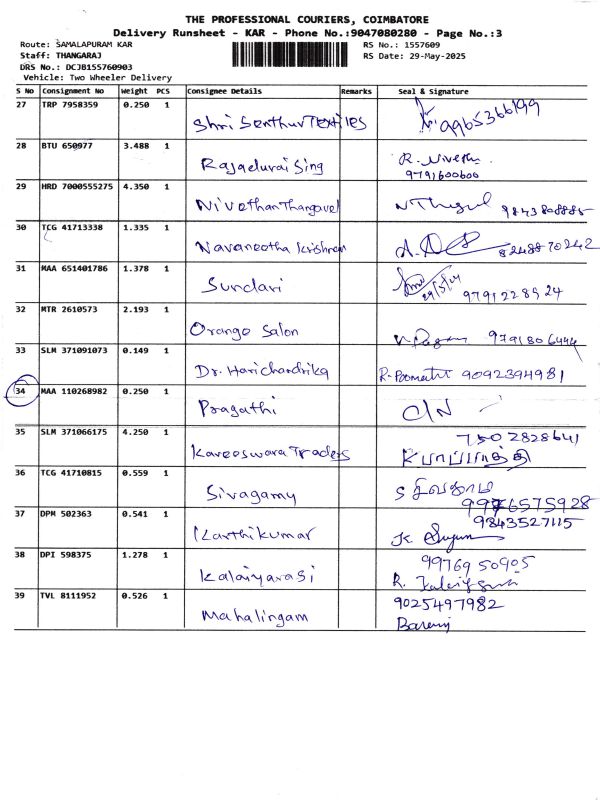 THE PROFESSIONAL COURIERS, COIMBATORE
Delivery Runsheet - KAR - Phone No.:9047080280 - Page No.:3
Route: SAMALAPURAM KAR RS No.: 1557609
Staff: THANGARAJ RS Date: 29-May-2025
DRS No.: DCJB155760903
Vehicle: Two Wheeler Delivery
S No Consignment No Weight PCS Consignee Details Remarks Seal & Signature
27 TRP 7958359 0.250 1
Shri Senthur Textiles 9965366199
28 BTU 650977 3.488 1
Rajadurai Sing R. Niveth
9791600600
29 HRD 7000555275 4.350 1
Nivethan Thangavel 9843808885
30 TCG 41713338 1.335 1
Navaneetha Krishnan 8248870242
31 MAA 651401786 1.378 1
Sundari 9791228924
32 MTR 2610573 2.193 1
Orango Salon 9791806444
33 SLM 371091073 0.149 1
Dr. Harichandrika R. Poomathi 9092394981
34 MAA 110268982 0.250 1
Pragathi C/N
35 SLM 371066175 4.250 1 7502828641
Kareeswara Traders
36 TCG 41710815 0.559 1
Sivagamy S சிவகாமி
9976575928
37 DPM 502363 0.541 1 9843527115
Karthikumar
38 DPI 598375 1.278 1 9976950905
Kalaiyarasi
39 TVL 8111952 0.526 1 9025497982
Mahalingam